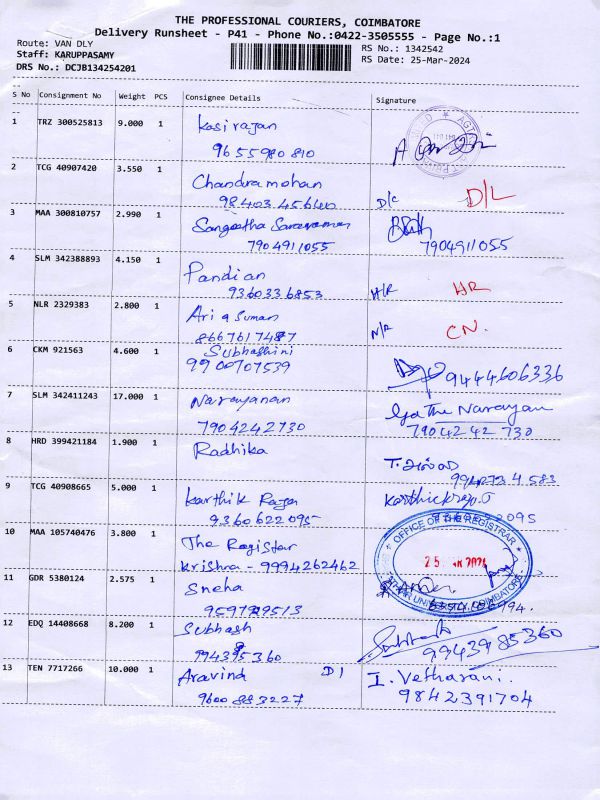 THE PROFESSIONAL COURIERS, COIMBATORE
Delivery Runsheet - P41 - Phone No.:0422-3505555 - Page No.:1
Route: VAN DLY
RS No.: 1342542
Staff: KARUPPASAMY
RS Date: 25-Mar-2024
DRS No.: DCJB134254201
S No Consignment No Weight PCS Consignee Details Signature
1 TRZ 300525813 9.000 1 Kasirajan
9655980810
2 TCG 40907420 3.550 1 Chandramohan D/L
98403 45640 D/C
3 MAA 300810757 2.990 1 Sangeetha Saravanan
7904911055 7904911055
4 SLM 342388893 4.150 1 Pandian
9360336853 H/R HR
5 NLR 2329383 2.800 1 Suman
8667617487 N/R CN.
6 CKM 921563 4.600 1 Subhashini
9900707539 9444606336
7 SLM 342411243 17.000 1 Narayanan Narayan
7904242730 79042 42 730
8 HRD 399421184 1.900 1 Radhika
9
TCG 40908665 5.000 1 Karthik Raja Karthickraja.J
9360622095
10 MAA 105740476 3.800 1 The Registar
Krishna - 9994262462
OFFICE OF THE REGISTRAR
COIMBATORE
11 GDR 5380124 2.575 1 Sneha
12 EDQ 14408668 8.200 1 Subhash
9943985360
13 TEN 7717266 10.000 1 Aravind D1 I. Vetharani.
9600883227 9842391704